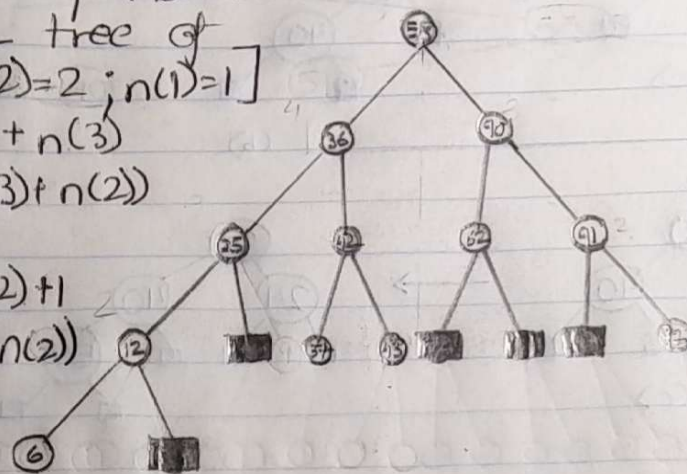 tree of
2)=2 ; n(1)=1]
+ n(3)
3)+ n(2))
2)+1
n(2))
36
90
25
62
91
12
6